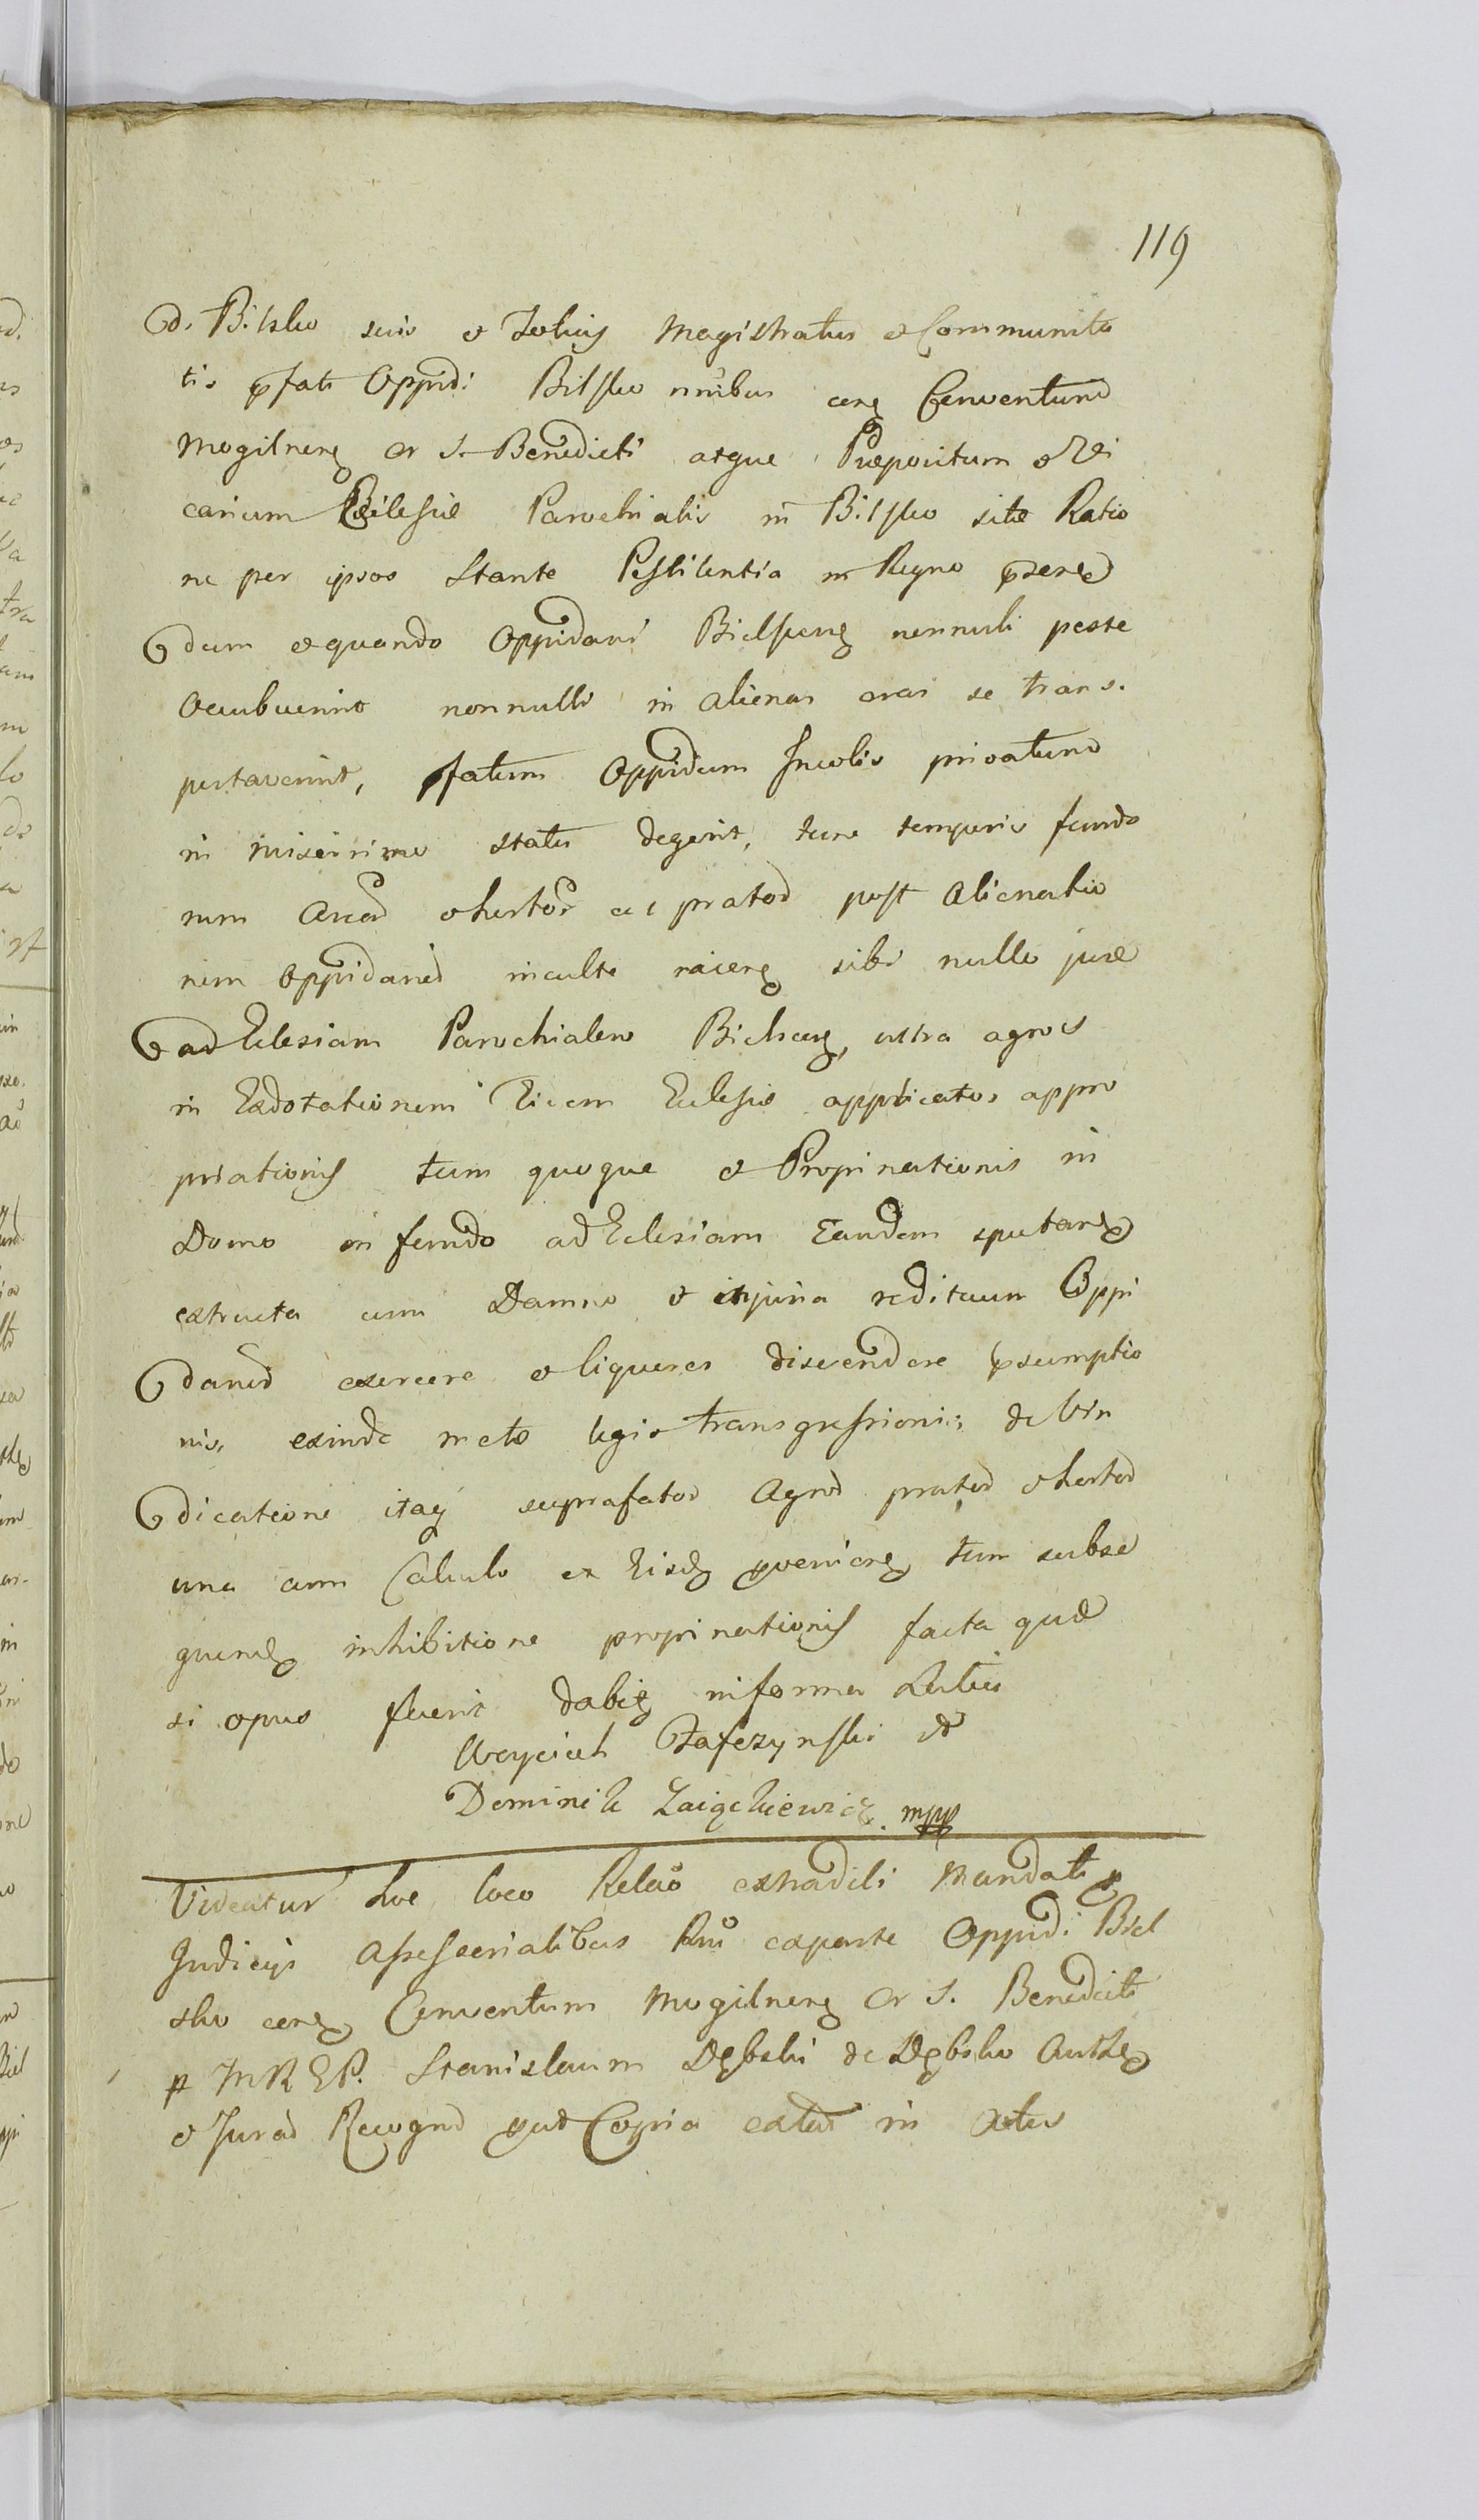 119
d. Bilsko suis et Totius Magistratus et Communita
tis pfati Oppidi Bilsko nnibus cong Conventum
Mogilneng Or S. Benedicti atque Praepositum et Vi
carium Ecclesiae Parochialis in Bilsko sitae Ratio
ne per ipsos Stante Pestilentia in Regno
dum et quando Oppidani Bielsceng nonnuli peste
Ocubuerint nonnulli in alienas oras se trans-
portaverint, pfatum Oppidum Incolis privatum
in miserrimo statu degerit, tunc temporis fundo
rum Arear et hortor ac prator post Alienatio
nem Oppidanor inculte sibi nullo jure
ad Eclesiam Parochialem Bielsceng, ultra agros
in Exdotationem Ecclesiae applicatos appro
priationis tum quoque et Propinationis in
Domo in fundo ad Eclesiam Eandem sputang
extructa cum Damno et injuria redituum Oppi
danor exercere et liquores divendere psumptio
nis, exinde legis transgressionis, de Vin
dicatione itaq suprafator Agror prator et hortor
una cum Calculo ex Eisdg pvenieng tum subse
queng inhibitione propinationis facta quae
si opus fuerit dabig in forma Latius
Woyciech et
Dominik mpp
Videatur hoc loco Relao extraditi Mandati
Judicijs Assessorialibus Rni exparte Oppidi Biel
sko cong Conventum Mogilneng Or S. Benedicti
p Stanislaum Dębski de Dębsko
et Jurad Recognd put Copia extat in Actis